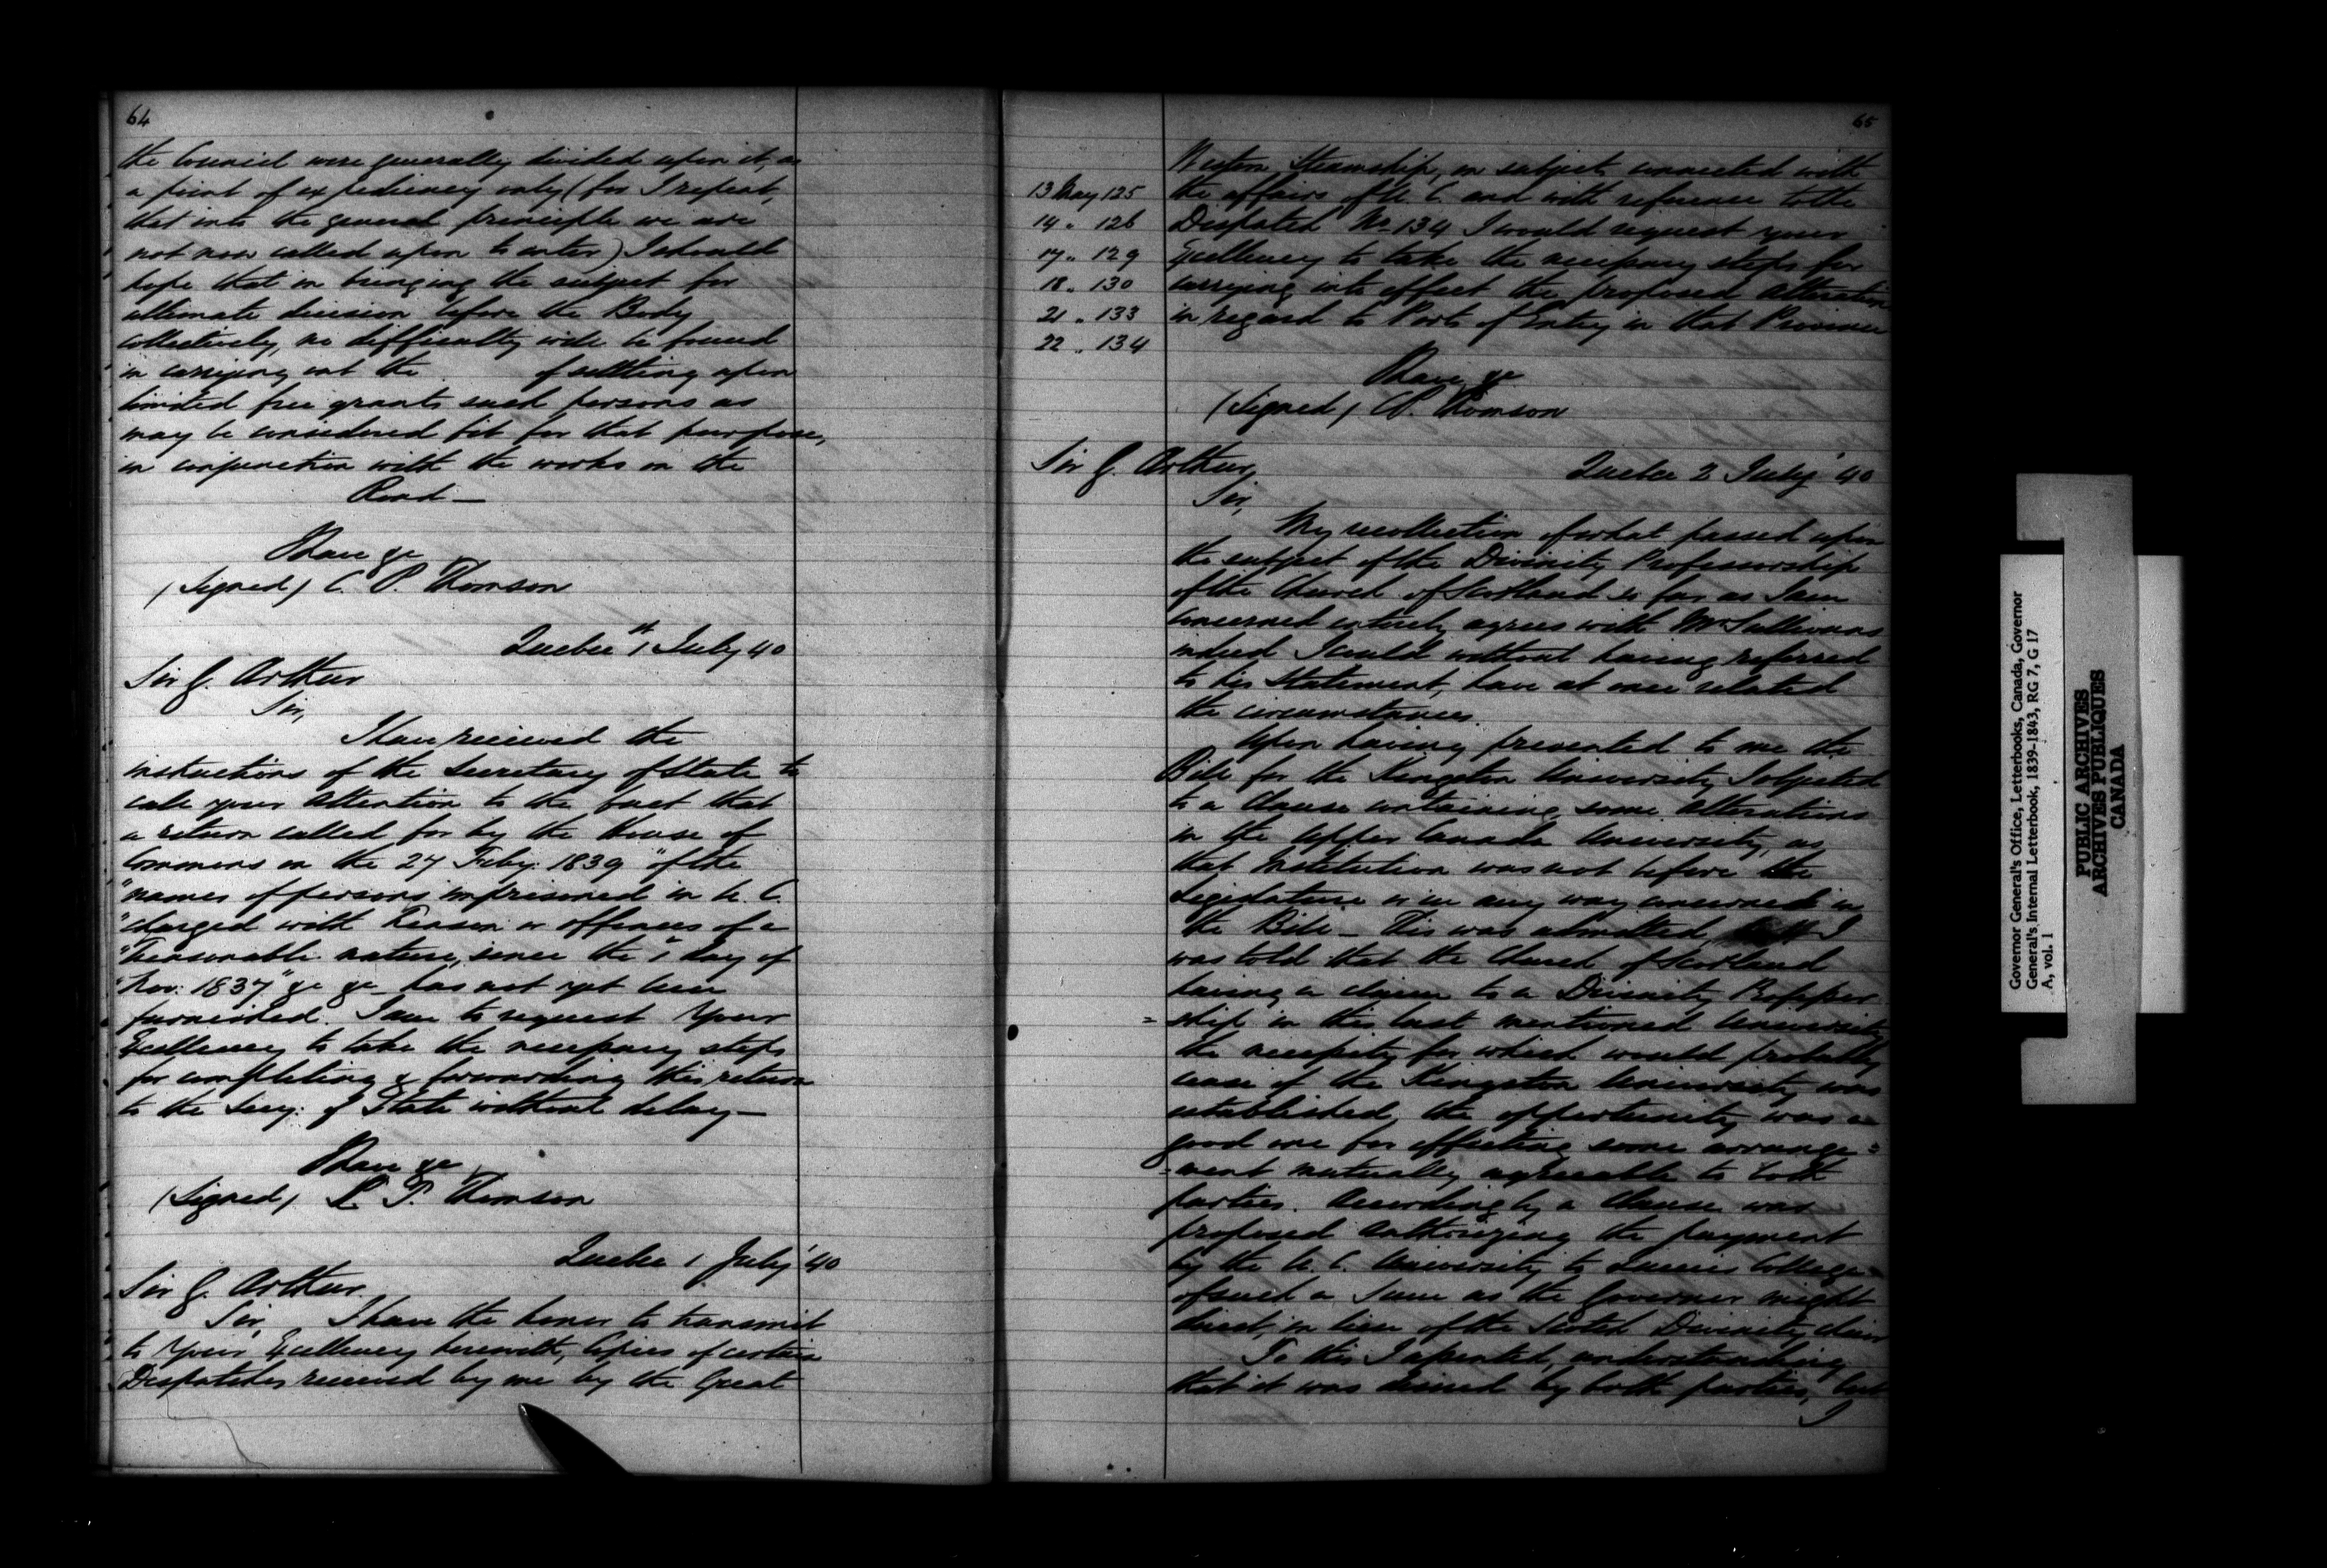 64
the Council were generally divided upon it, as
a point of expediency only (for I repeat,
that into the general principle we are
not now called upon to enter) I should
hope that in bringing the subject for
ultimate decision before the Body
collectively, no difficulty will be found
in carrying out the of settling upon
limited free grants such persons as
may be considered fit for that purpose,
in conjunction with the works on the
Road —
I have &c
(Signed) C. P. Thomson
Quebec 1st July 40
Sir G. Arthur
Sir,
I have received the
instructions of the Secretary of State to
call your attention to the fact that
a return called for by the House of
Commons on the 27 Feby: 1839 "of the
"names of persons imprisoned in U. C.
"charged with Treason or offences of a
"Treasonable nature, since the 1st day of
"Nov: 1837" &c &c — has not yet been
furnished. I am to request Your
Excellency to take the necessary steps
for completing & forwarding this return
to the Secy: of State without delay —
I have &c
(Signed) C. P. Thomson
Quebec 1 July '40
Sir G. Arthur
Sir, I have the honor to transmit
to Your Excellency herewith, Copies of certain
Despatches received by me by the Great
65
Western Steamship, on subjects connected with
13 May 125 the affairs of U. C. and with reference to the
14 " 126 Despatch No 134 I would request your
17 " 129 Excellency to take the necessary steps for
18 " 130 carrying into effect the proposed alteration
21 " 133 in regard to Ports of Entry in that Province
22 " 134
I have &c
(Signed) C. P. Thomson
Sir G. Arthur, Quebec 2 July '40
Sir,
My recollection of what passed upon
the subject of the Divinity Professorship
of the Church of Scotland so far as I am
concerned entirely agrees with Mr Sullivans
indeed I could without having referred
to his Statement, have at once related
the circumstances.
Upon having presented to me the
Bill for the Kingston University, I objected
to a Clause containing some alterations
in the Upper Canada University, as
that Institution was not before the
Legislature or in any way concerned in
the Bill — This was admitted, but I
was told that the Church of Scotland
having a claim to a Divinity Professor
= ship in this last mentioned University
the necessity for which would probably
cease if the Kingston University was
established, the opportunity was a
good one for effecting some arrange=
=ment mutually agreeable to both
parties. Accordingly a Clause was
proposed authorizing the payment
by the U. C. University to Queens College
of such a sum as the Governor might
direct, in lieu of the Scotch Divinity chair
To this I assented, understanding
that it was desired by both parties, but
I
Governor General's Office, Letterbooks, Canada, Governor
General's Internal Letterbook, 1839-1843, RG 7, G 17
A, vol. 1
PUBLIC ARCHIVES
ARCHIVES PUBLIQUES
CANADA